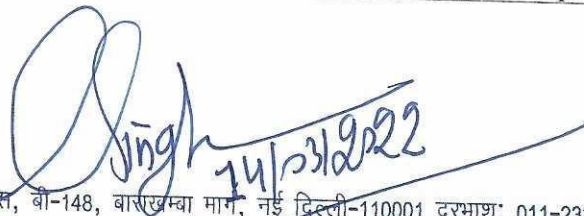 Singh
14/03/2022
स, बी-148, बाराखम्बा मार्ग, नई दिल्ली-110001 दूरभाष: 011-22